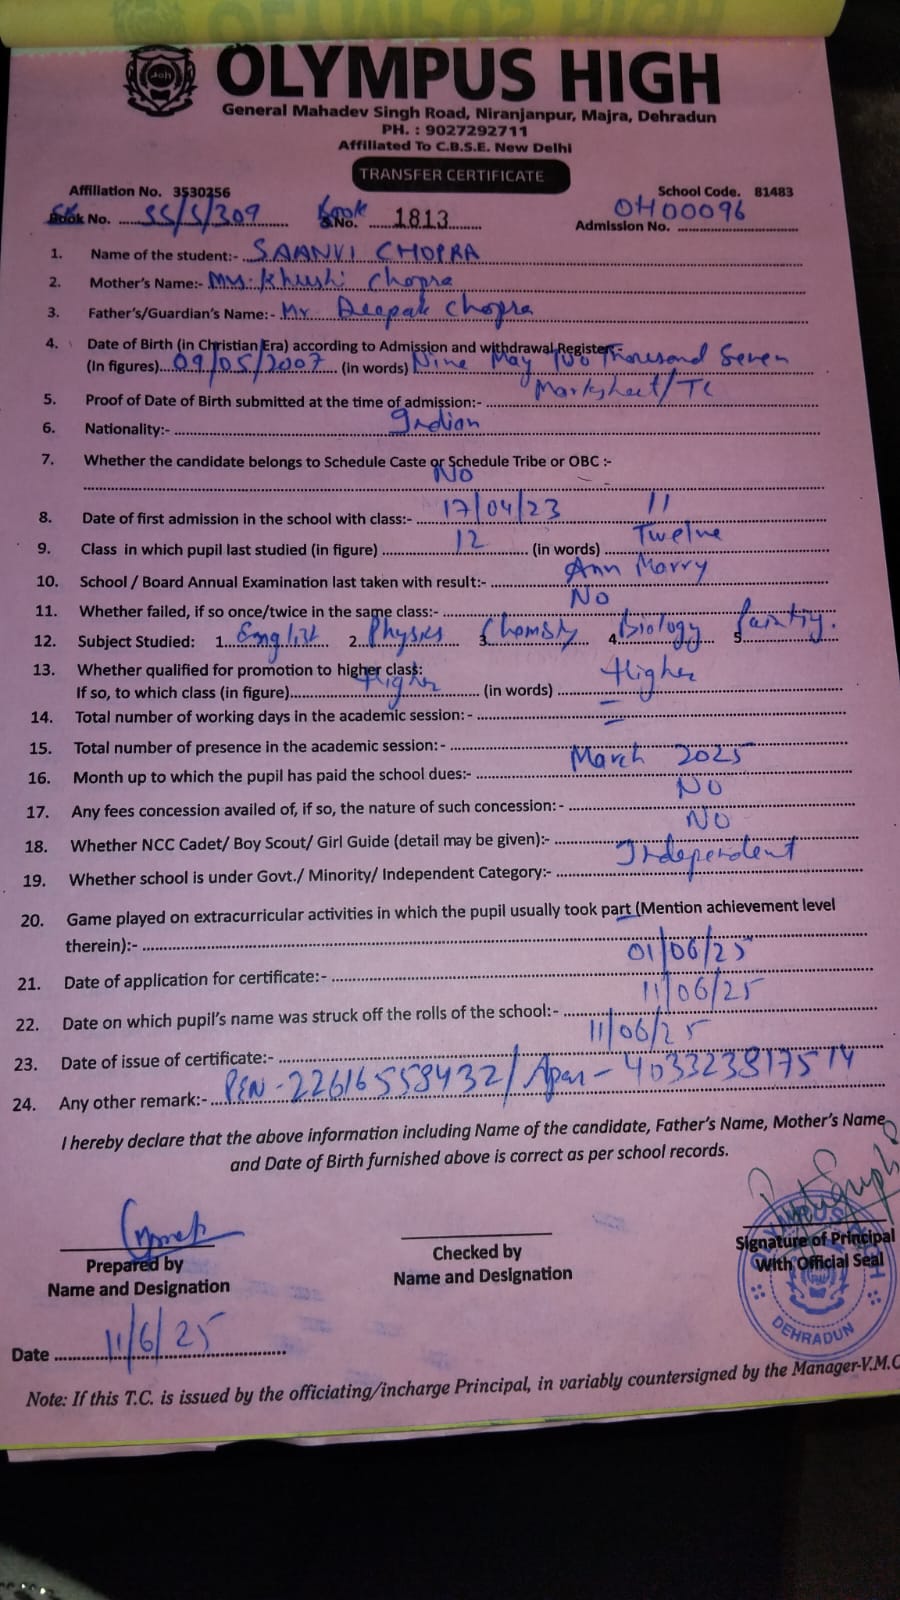 OLYMPUS HIGH
General Mahadev Singh Road, Niranjanpur, Majra, Dehradun
PH. : 9027292711
Affiliated To C.B.S.E. New Delhi
TRANSFER CERTIFICATE
Affiliation No. 3530256 School Code. 81483
No. 55/S/309 Book No. 1813 Admission No. OH00096
1. Name of the student:- SAANVI CHOPRA
2. Mother's Name:- Ms. Khushi Chopra
3. Father's/Guardian's Name:- Mr Deepak Chopra
4. Date of Birth (in Christian Era) according to Admission and withdrawal Register:-
(In figures) 09/05/2007 (in words) Nine May Two Thousand Seven
5. Proof of Date of Birth submitted at the time of admission:- Marksheet/TC
6. Nationality:- Indian
7. Whether the candidate belongs to Schedule Caste or Schedule Tribe or OBC :-
No
8. Date of first admission in the school with class:- 17/04/23 11
9. Class in which pupil last studied (in figure) 12 (in words) Twelve
10. School / Board Annual Examination last taken with result:- Ann Marry
11. Whether failed, if so once/twice in the same class:- No
12. Subject Studied: 1. English 2. Physics 3. Chemsty 4. Biology 5.
13. Whether qualified for promotion to higher class:
If so, to which class (in figure) Higher (in words) Higher
14. Total number of working days in the academic session: -
15. Total number of presence in the academic session: -
16. Month up to which the pupil has paid the school dues:- March 2025
17. Any fees concession availed of, if so, the nature of such concession: - NO
18. Whether NCC Cadet/ Boy Scout/ Girl Guide (detail may be given):- NO
19. Whether school is under Govt./ Minority/ Independent Category:- Independent
20. Game played on extracurricular activities in which the pupil usually took part (Mention achievement level
therein):-
21. Date of application for certificate:- 01/06/25
22. Date on which pupil's name was struck off the rolls of the school:- 11/06/25
23. Date of issue of certificate:- 11/06/25
24. Any other remark:- PEN - 22616558432/ Apar - 403323817514
I hereby declare that the above information including Name of the candidate, Father's Name, Mother's Name
and Date of Birth furnished above is correct as per school records.
Prepared by
Name and Designation
Checked by
Name and Designation
Signature of Principal
With Official Seal
DEHRADUN
Date 11/6/25
Note: If this T.C. is issued by the officiating/incharge Principal, in variably countersigned by the Manager-V.M.C